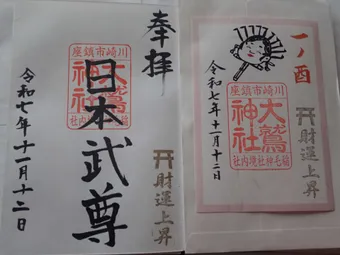 奉拝
川崎市鎮座
大鷲神社
日本武尊
財運上昇
令和七年十一月十二日
一ノ酉
川崎市鎮座
大鷲神社
稲毛神社境内社
財運上昇
令和七年十一月十二日